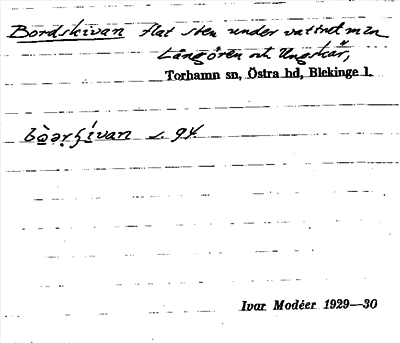 Bordskivan flat sten under vattnet m e n
Långören och Ungskär,
Torhamn sn, Östra hd, Blekinge l.
s. 94.
Ivar Modéer 1929—30